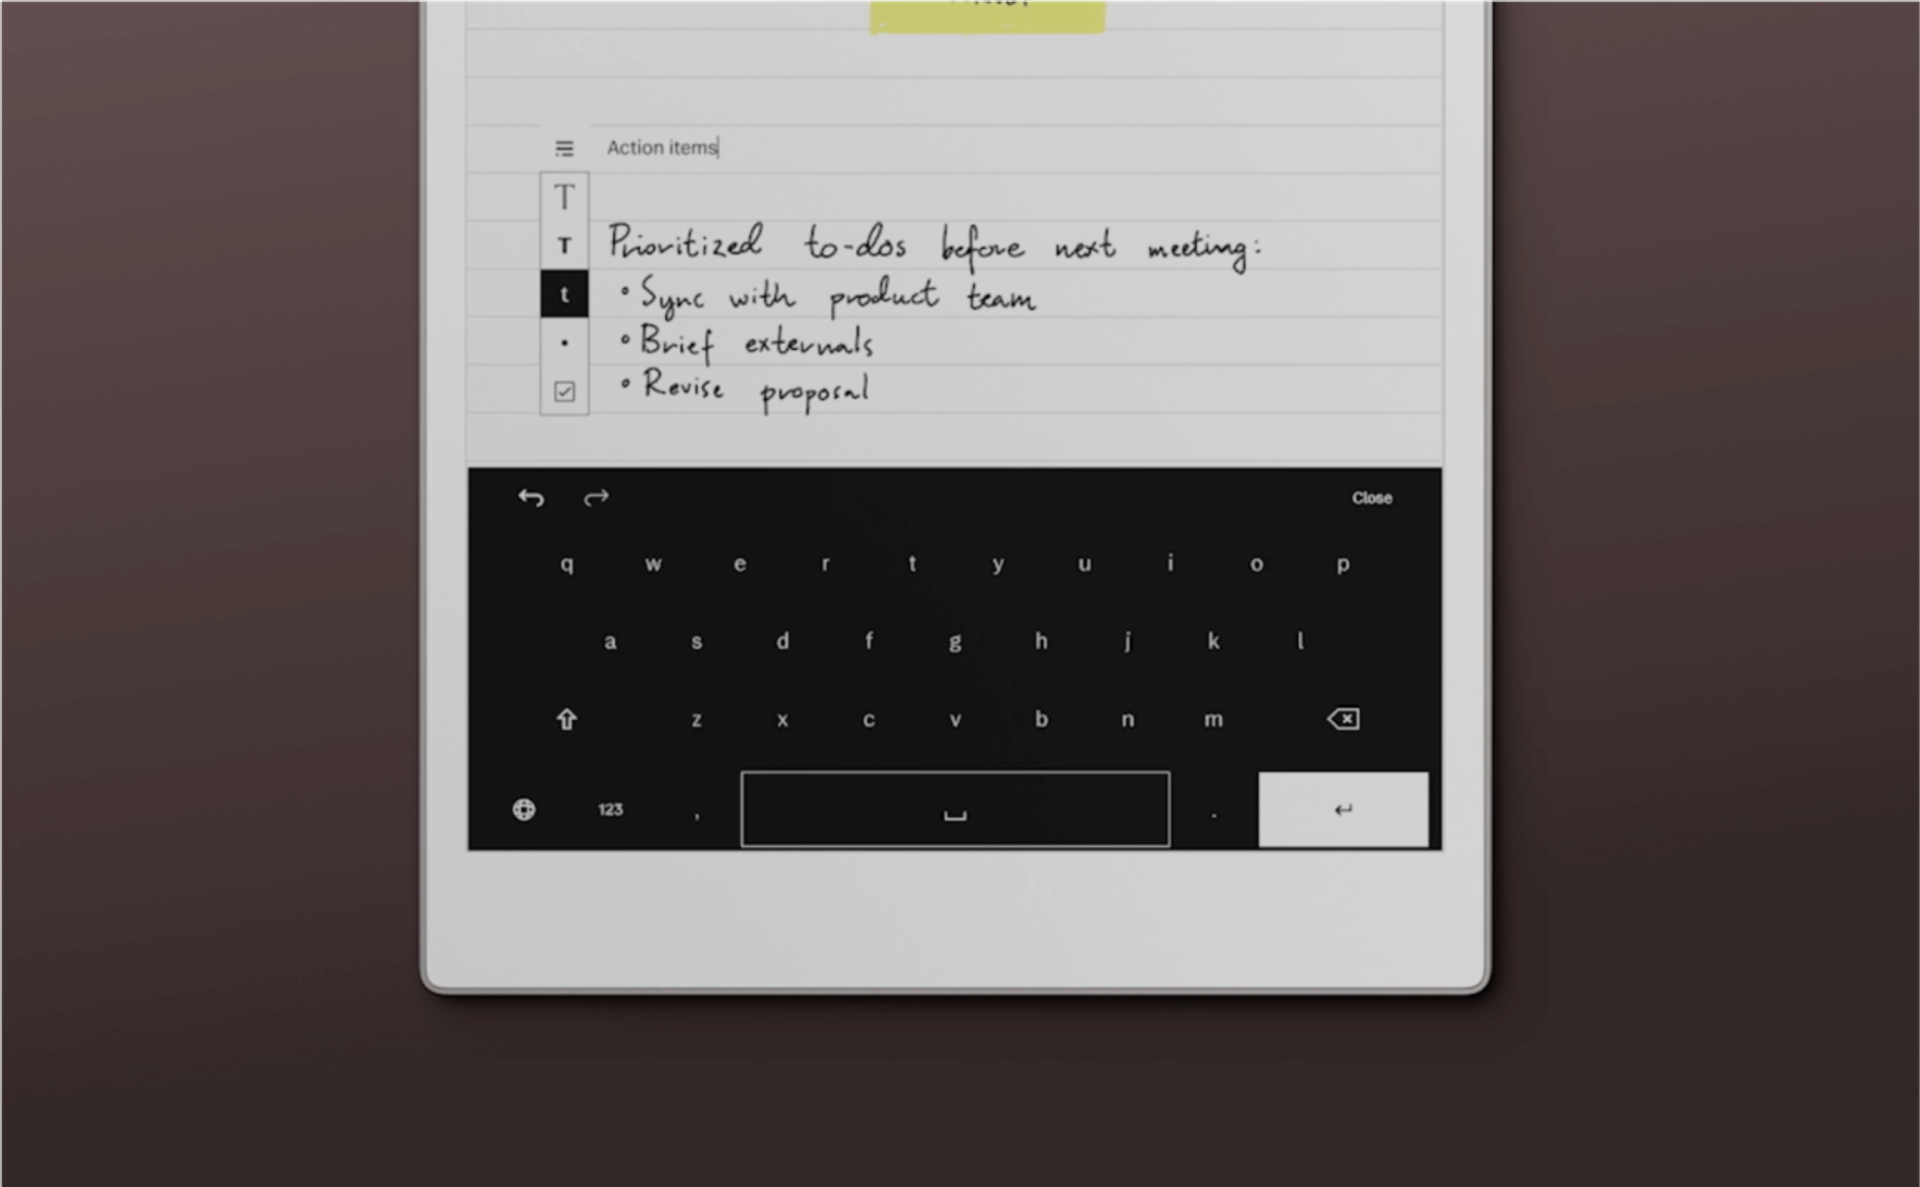 Action items
T
T
Prioritized to-dos before next meeting:
t
• Sync with product team
• Brief externals
• Revise proposal
Close
q w e r t y u i o p
a s d f g h j k l
z x c v b n m
123 , .